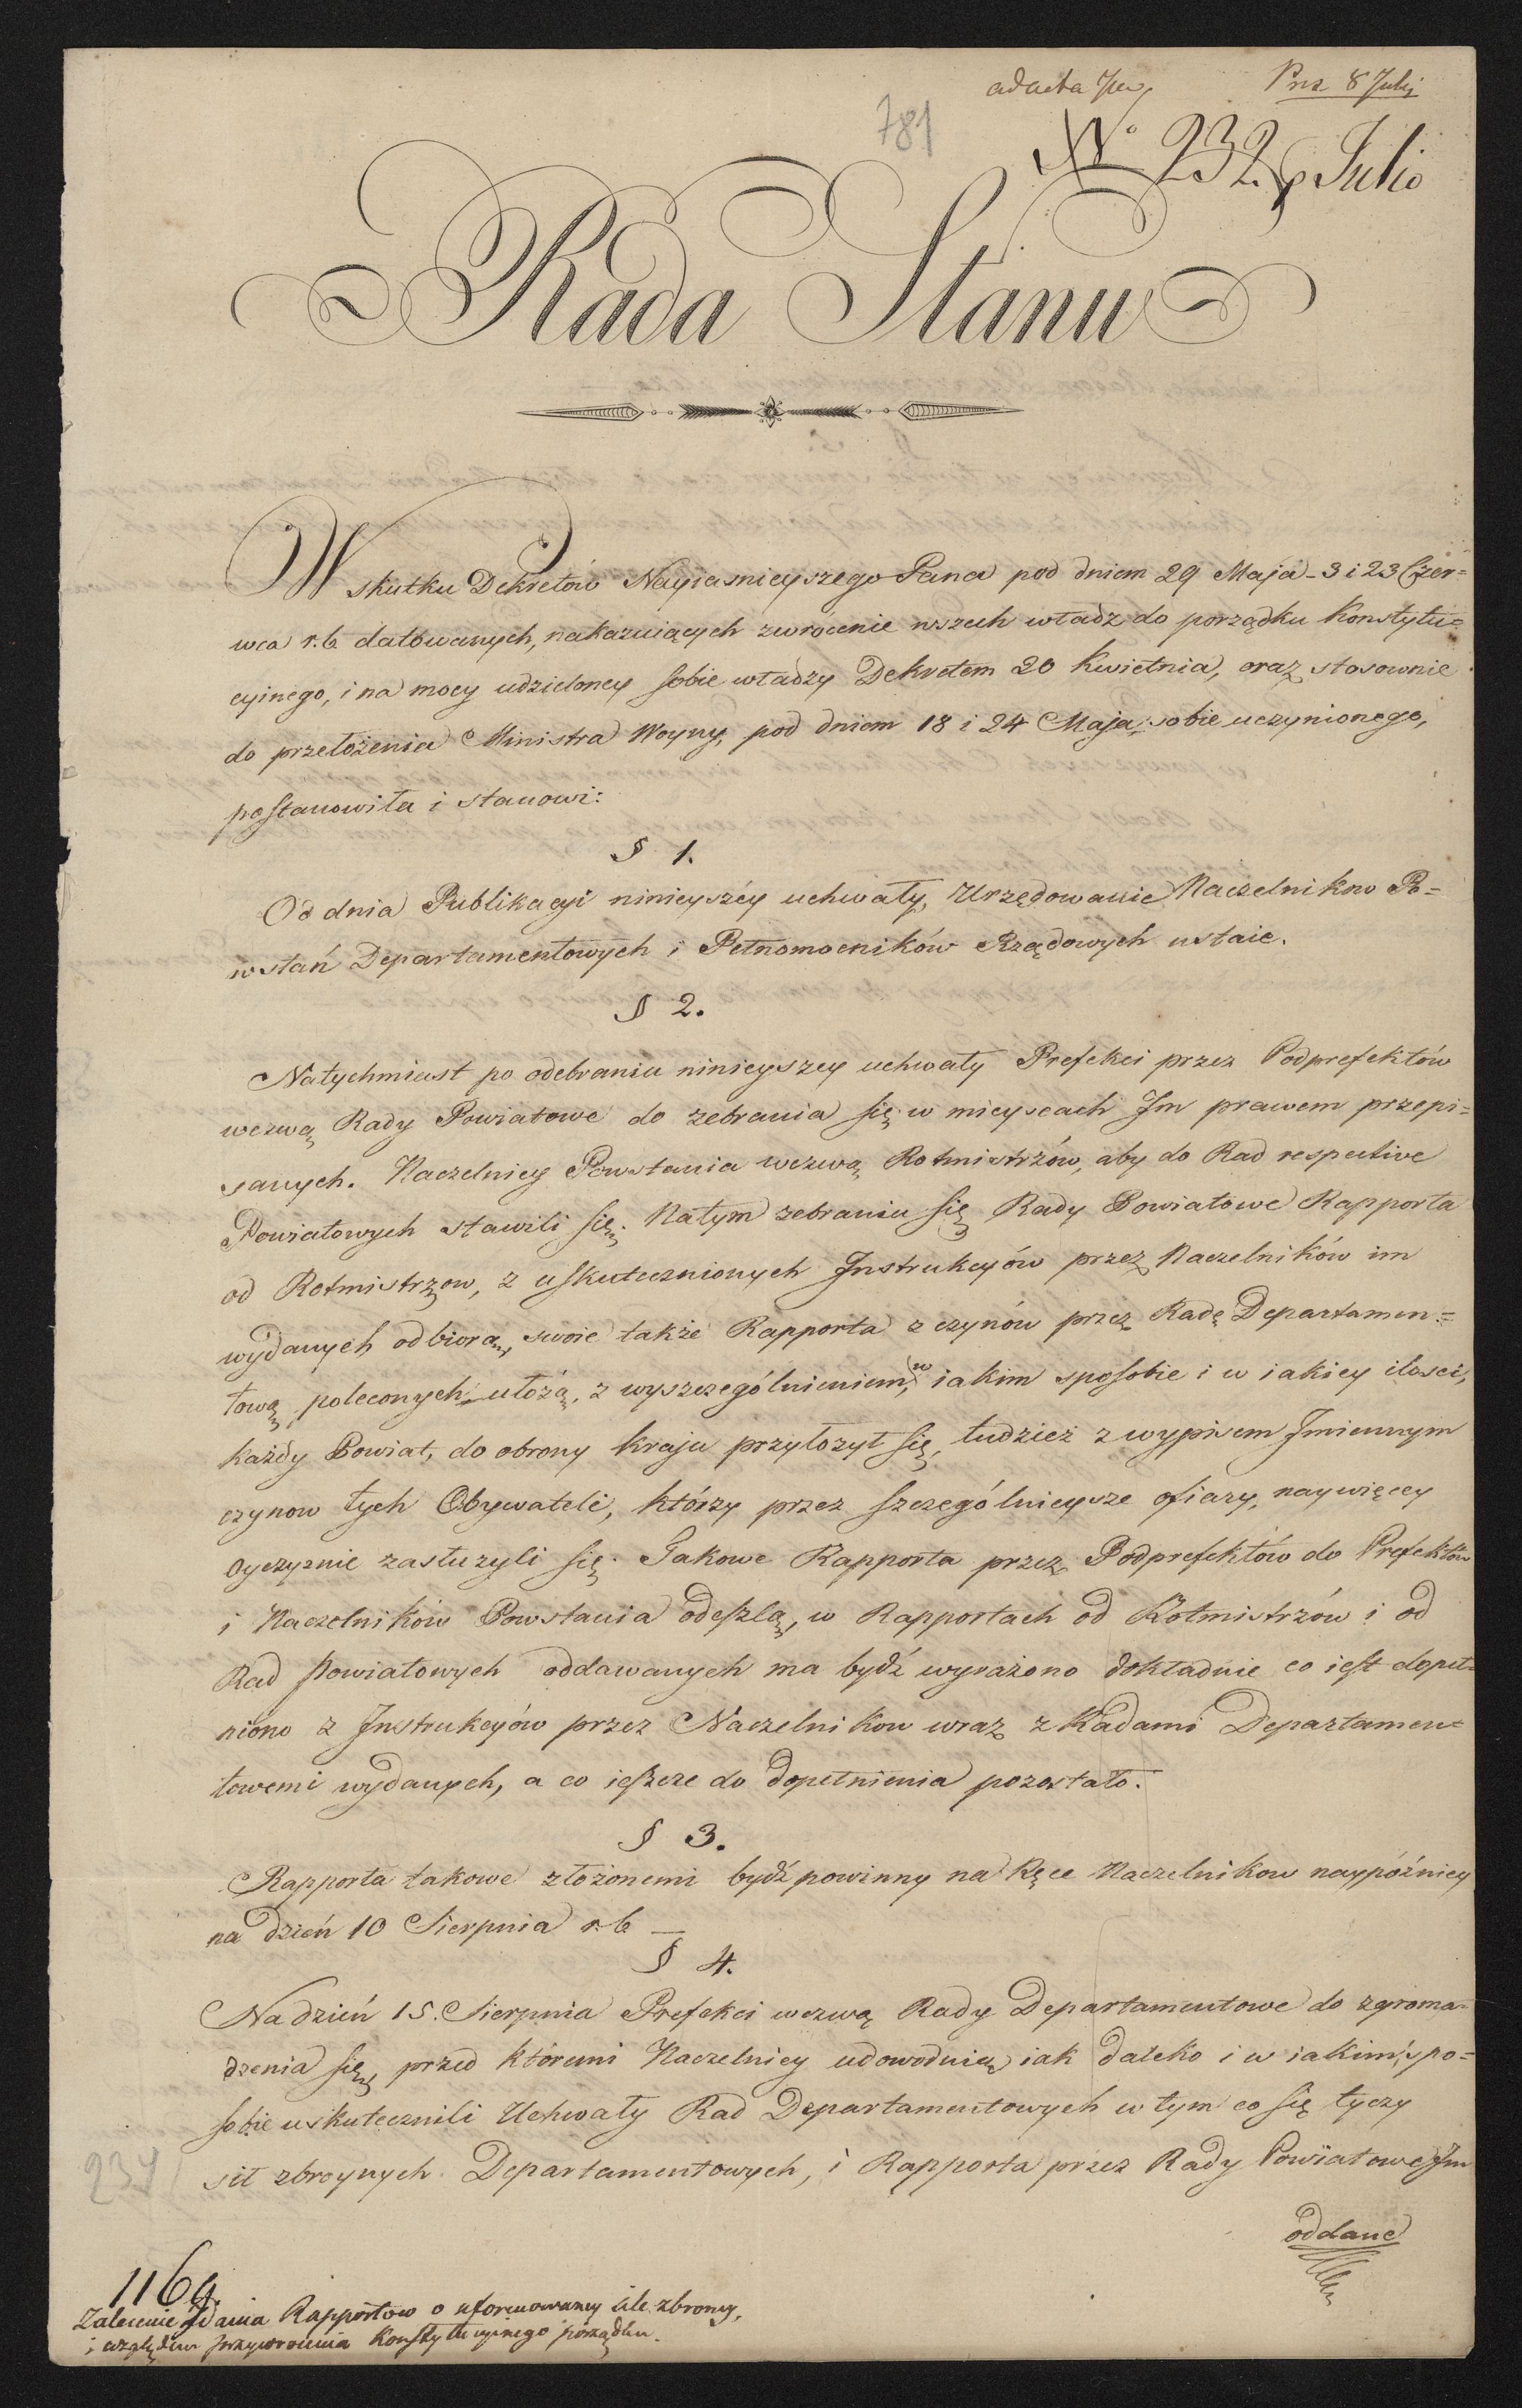 ad acta
Prez 8 Julij
781
No 232. p Julio
Rada Stanu
W skutku Dekretów Nayiasnieyszego Pana pod dniem 29 Maja - 3 i 23 Czer=
wca r. b. datowanych, nakazuiących zwrócenie wszech władz do porządku Konstytu=
cyinego, i na mocy udzieloney sobie władzy Dekretem 20 Kwietnia, oraz stosownie
do przełożenia Ministra Woyny, pod dniem 18 i 24 Maja sobie uczynionego,
postanowiła i stanowi:
§ 1.
Od dnia Publikacyi ninieyszéy uchwały, Urzędowanie Naczelnikow Po=
wstań Departamentowych i Pełnomocników Rządowych ustaie.
§ 2.
Natychmiast po odebraniu ninieyszey uchwały Prefekci przez Podprefektów
wezwą Rady Powiatowe do zebrania się w mieyscach Im prawem przepi=
sanych. Naczelnicy Powstania wezwą Rotmistrzów, aby do Rad respective
Powiatowych stawili się. Na tym zebraniu się Rady Powiatowe Rapporta
od Rotmistrzow, z uskutecznionych Instrukcyów przez Naczelników im
wydanych odbiorą, swoie także Rapporta z czynów przez Radę Departamen=
tową poleconych ułożą, z wyszczególnieniem, w iakim sposobie i w iakiey ilości,
każdy Powiat, do obrony kraju przyłożył się, tudzież z wypisem Imiennym
czynow tych Obywateli, którzy przez szczególnieysze ofiary, naywięcey
Oyczyznie zasłużyli się. Takowe Rapporta przez Podprefektów do Prefektów
i Naczelników Powstania odeszlą, w Rapportach od Rotmistrzów i od
Rad Powiatowych oddawanych ma bydź wyrażono dokładnie co iest dopeł=
niono z Instrukcyów przez Naczelnikow wraz z Radami Departamen=
towemi wydanych, a co ieszcze do dopełnienia pozostało.
§ 3.
Rapporta takowe złożonemi bydź powinny na Ręce Naczelnikow naypóźniey
na dzień 10 Sierpnia r. b. —
§ 4.
Na dzień 15. Sierpnia Prefekci wezwą Rady Departamentowe do zgroma=
dzenia się, przed któremi Naczelnicy udowodnią iak daleko i w iakim spo=
sobie uskutecznili Uchwały Rad Departamentowych w tym co się tyczy
sił zbroynych Departamentowych, i Rapporta przez Rady Powiatowe Im
oddane
234
1164.
Zalecenie zdania Rapportow o uformowaney sile zbroney,
i względem przywrócenia Konstytucyinego porządku.